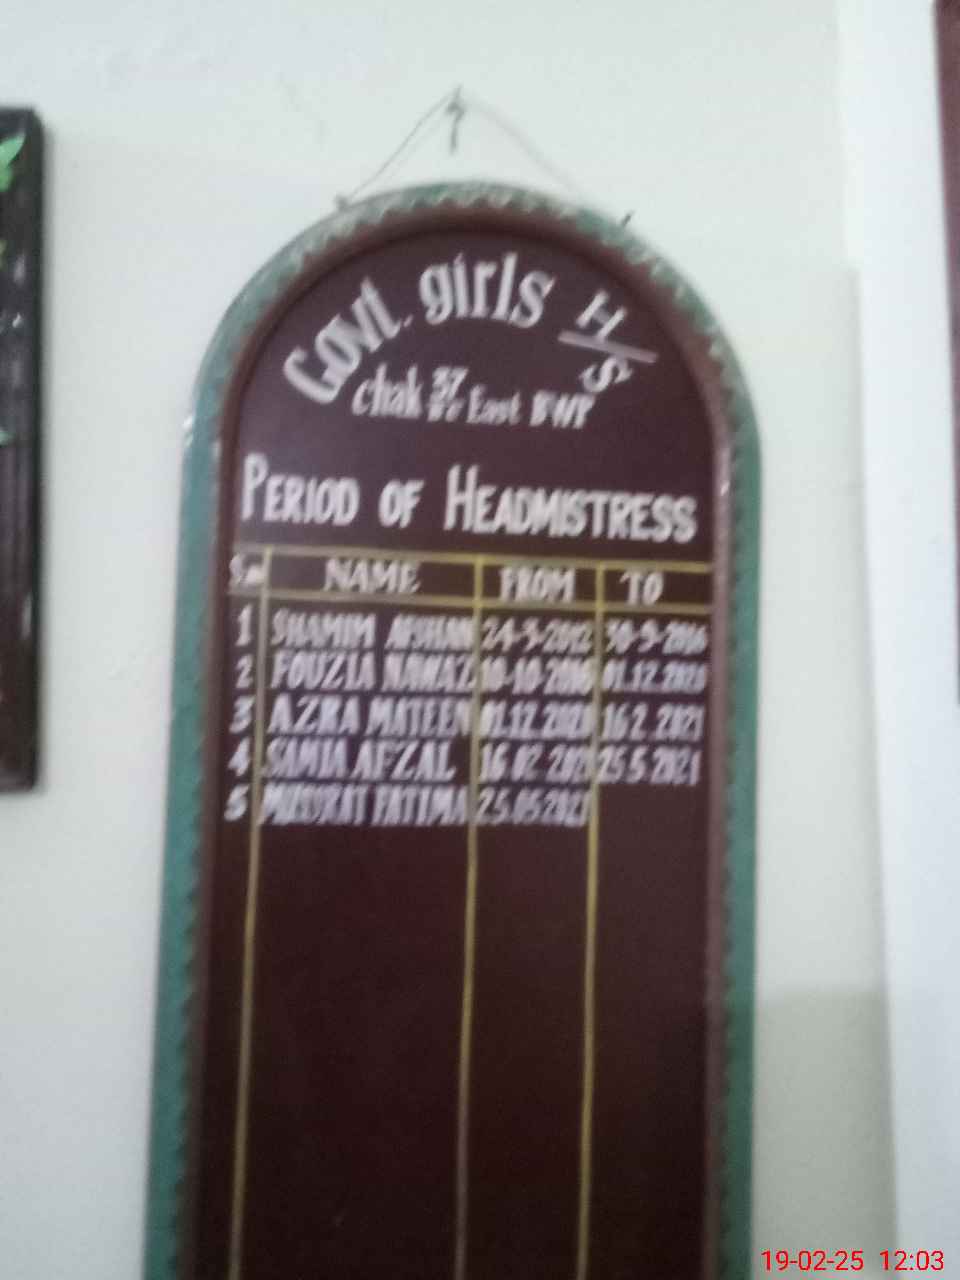 Govt. girls H/S
chak 37 East BWP
PERIOD OF HEADMISTRESS
NAME FROM TO
1 SHAMIM AFSHAN 30-9-2016
2 FOUZIA NAWAZ 10-10-2016 01.12.2020
3 AZRA MATEEN 01.12.2020 16 2.2021
4 SAMIA AFZAL 16 02 2021 25 5 2021
5 MUSURAT FATIMA 25.05.2021
19-02-25 12:03